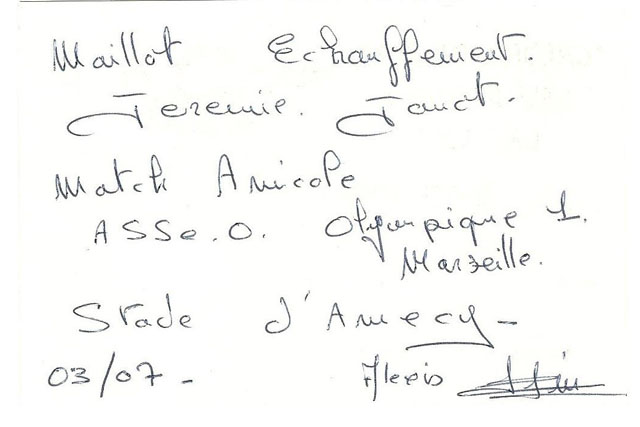 Maillot Echauffement.
Jeremie. Janot.
Match Amicale
ASSe. 0. Olympique 1.
Marseille.
Stade d'Annecy -
03/07 - Alexis